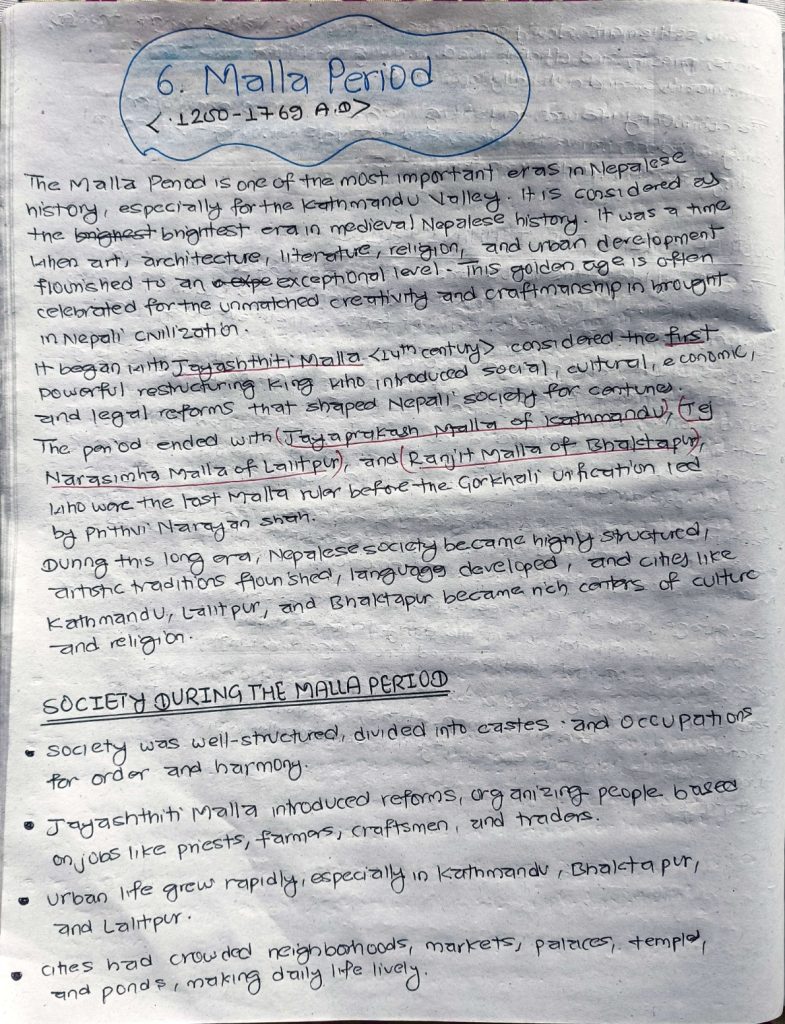 6. Malla Period
<.1200-1769 A.D>
The Malla Period is one of the most important eras in Nepalese
history, especially for the Kathmandu Valley. It is considered as
the brighest brightest era in medieval Nepalese history. It was a time
when art, architecture, literature, religion, and urban development
flourished to an exceptional level. This golden age is often
celebrated for the unmatched creativity and craftmanship in brought
in Nepali civilization.
It began with Jayashthiti Malla <14th century> considered the first
powerful restructuring King who introduced social, cultural, economic,
and legal reforms that shaped Nepali society for centuries.
The period ended with (Jayaprakash Malla of Kathmandu), (Tej
Narasimha Malla of Lalitpur), and (Ranjit Malla of Bhaktapur),
who were the last Malla ruler before the Gorkhali unification led
by Prithvi Narayan Shah.
During this long era, Nepalese society became highly structured,
artistic traditions flourished, languages developed, and cities like
Kathmandu, Lalitpur, and Bhaktapur became rich centers of culture
and religion.
SOCIETY DURING THE MALLA PERIOD
• Society was well-structured, divided into castes and occupations
for order and harmony.
• Jayashthiti Malla introduced reforms, organizing people based
on jobs like priests, farmers, craftsmen, and traders.
• Urban life grew rapidly, especially in Kathmandu, Bhaktapur,
and Lalitpur.
• Cities had crowded neighborhoods, markets, palaces, temples,
and ponds, making daily life lively.